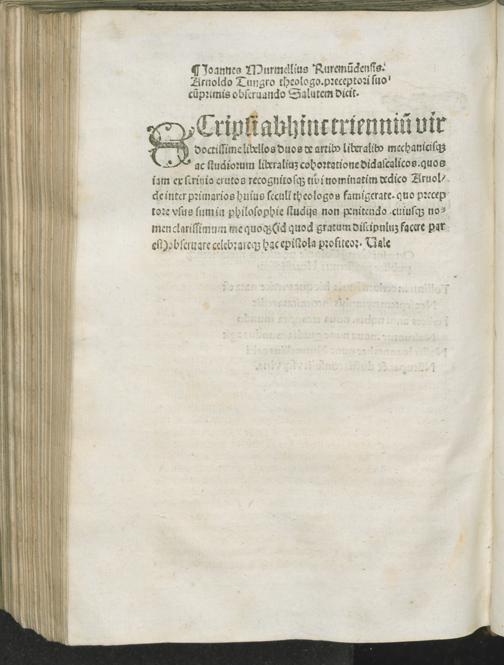 ¶Joannes Murmellius Ruremūdensis.
Arnoldo Tungro theologo. preceptori suo
cūprimis obseruando Salutem dicit.
SCripsi abhinc trienniū vir
doctissime libellos duos de artibꝰ liberalibꝰ mechanicisqꝫ
ac studiorum liberaliuꝫ cohortatione didascalicos. quos
iam ex scrinio erutos recognitosqꝫ tibi nominatim dedico Arnol/
de inter primarios huius seculi theologos famigerate. quo precep
tore vsus sum in philosophie studijs non penitendo. cuiusqꝫ no/
men clarissimum me quoqꝫ (id quod gratum discipuluꝫ facere par
est) obseruare celebrareqꝫ hac epistola profiteor. Uale